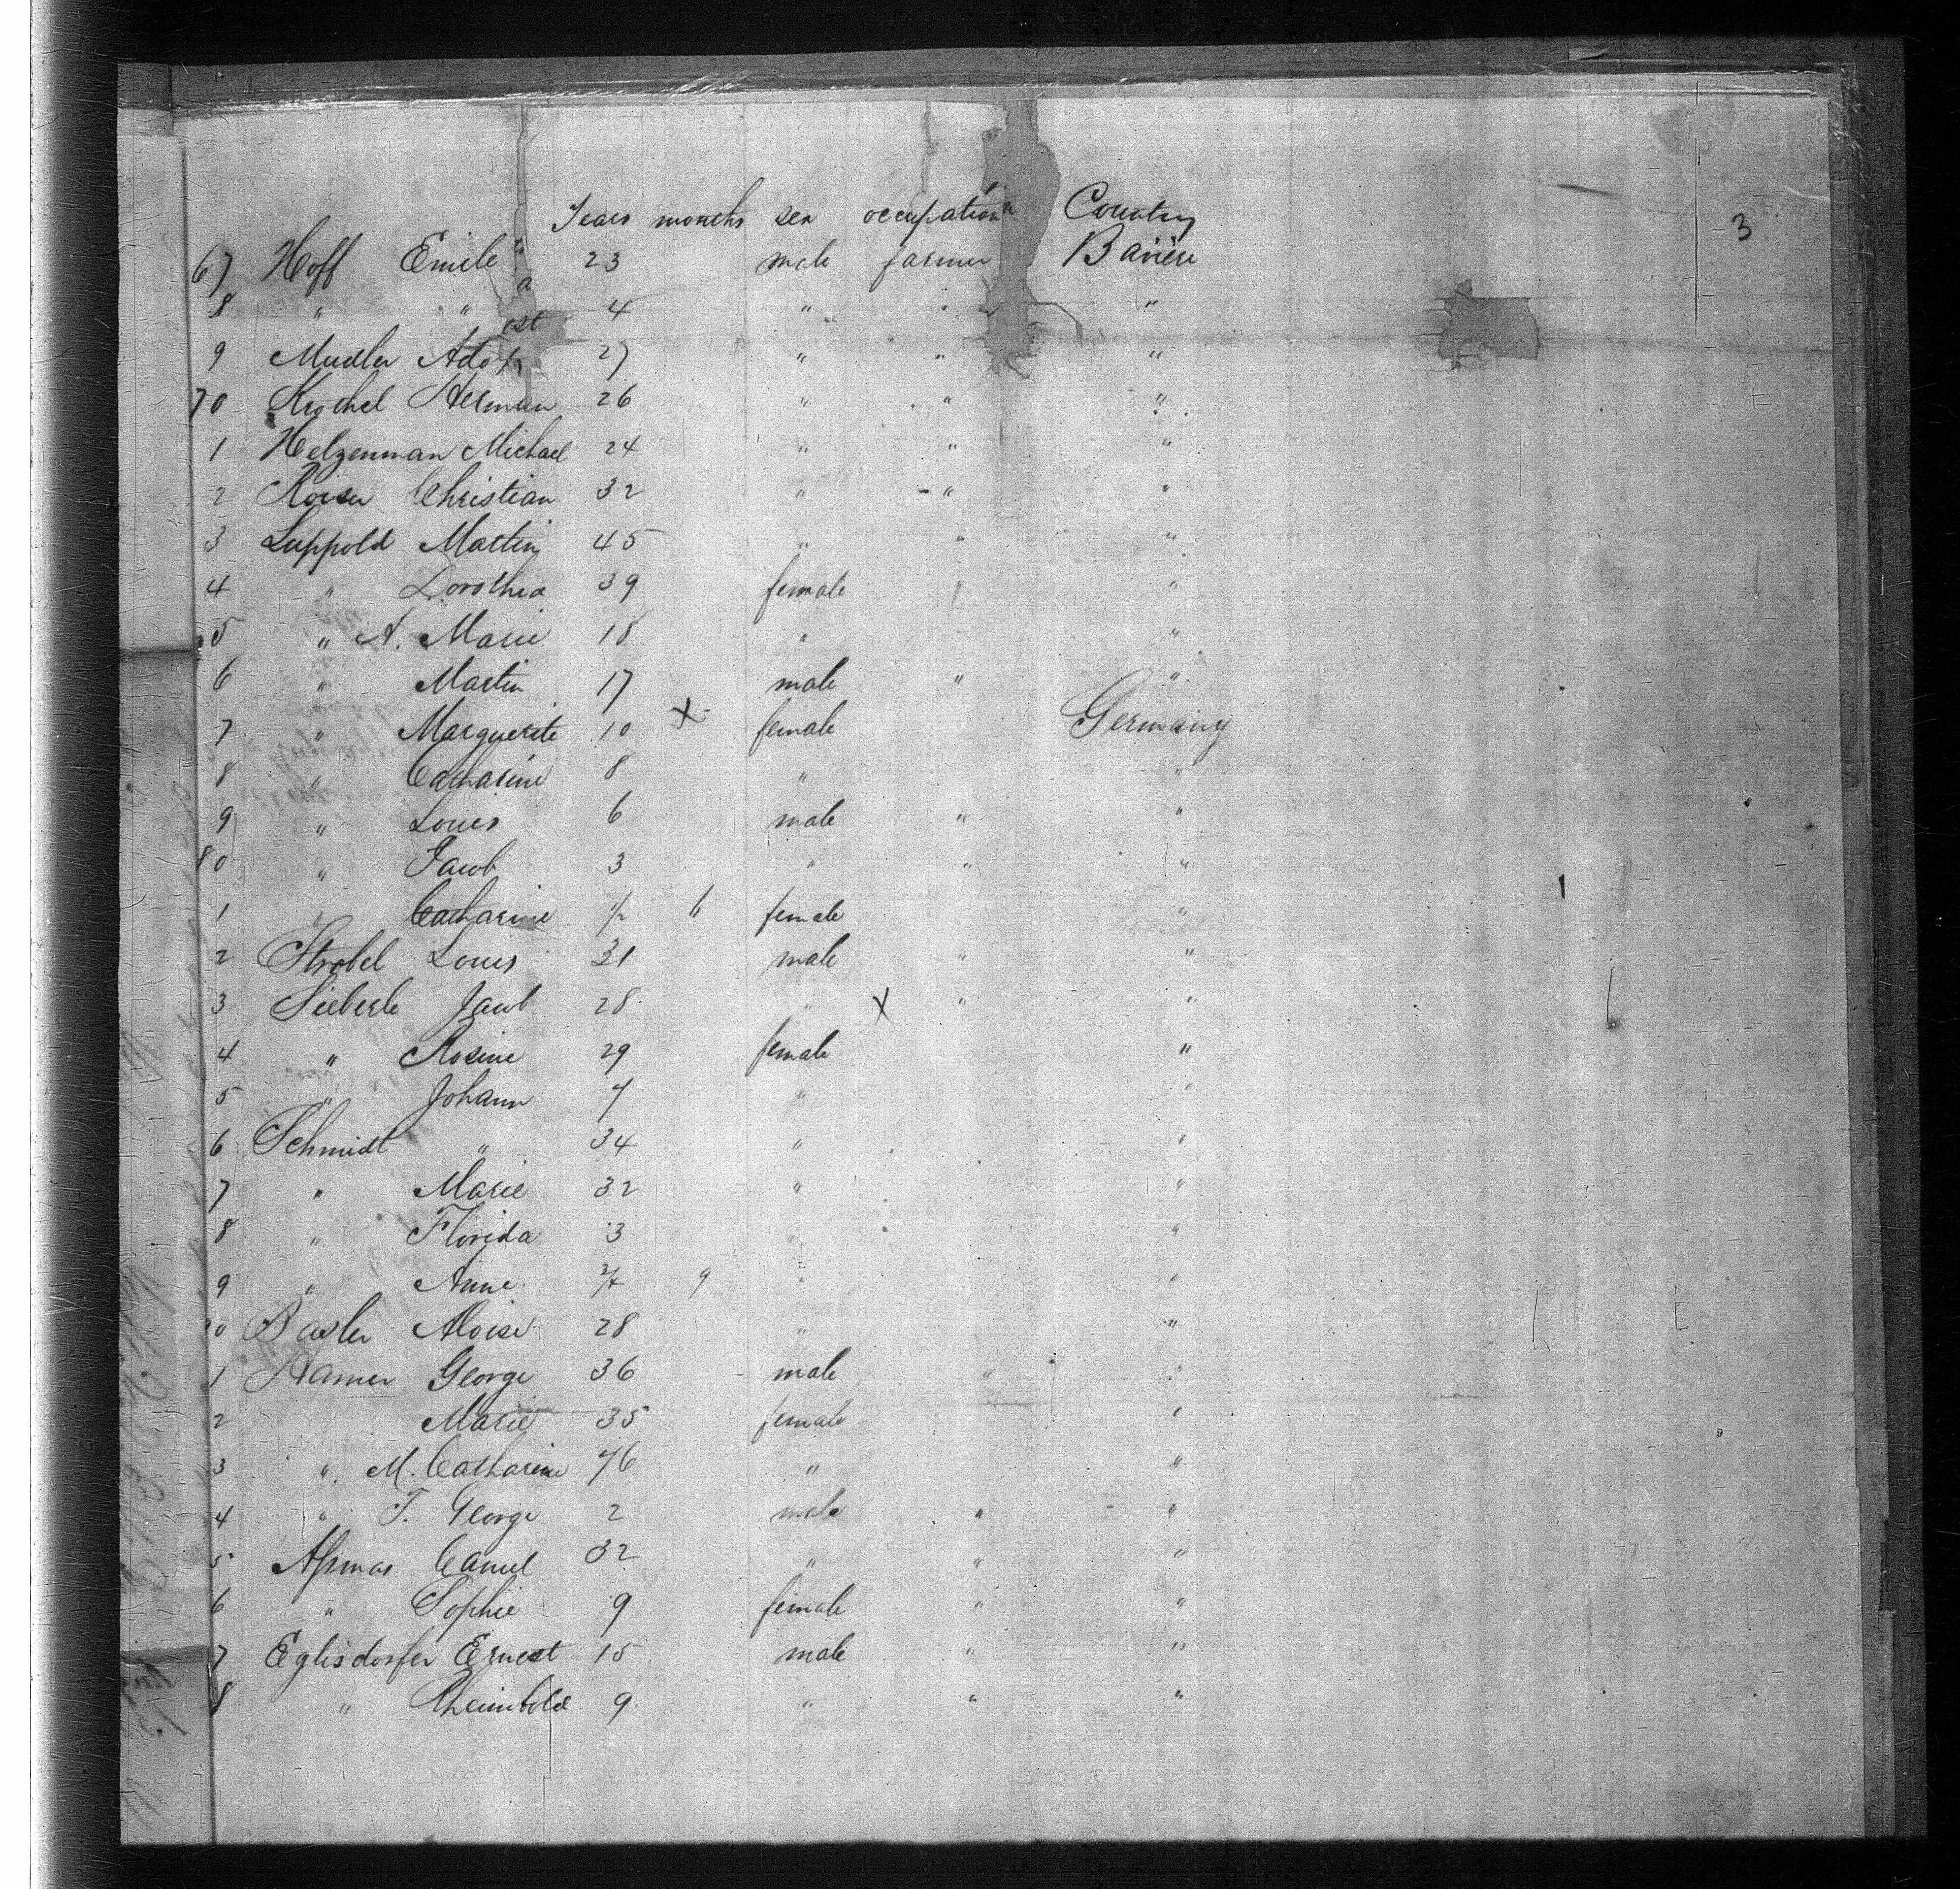 3
Years months sex occupation Country
67 Hoff Emile 23 male farmer Bavière
8 " " a 4 " " "
9 Mudler Adolf 27 " " "
70 Krochel Herman 26 " " "
1 Helzenman Michael 24 " " "
2 Roiser Christian 32 " " "
3 Luppold Martin 45 " " "
4 " Dorothea 39 female "
5 " A. Marie 18 " "
6 " Martin 17 male " "
7 " Marguerite 10 X female Germany
8 " Catharine 8 " "
9 " Louis 6 male " "
80 " Jacob 3 " " "
1 " Catharine 1/2 6 female "
2 Strobel Louis 31 male " "
3 Sieberle Jacob 28 " X " "
4 " Rosine 29 female "
5 " Johann 4 " "
6 Schmidt " 34 " "
7 " Marie 32 " "
8 " Florida 3 " "
9 " Anne 3/4 9 " "
0 Basler Aloise 28 " "
1 Hamer George 36 male " "
2 Marie 35 female "
3 " M. Catharine 46 " "
4 " J. George 2 male " "
5 Assmas 32 " " "
6 " Sophie 9 female " "
7 Eglisdorfer Ernest 15 male " "
8 " Rheinbold 9 " " "